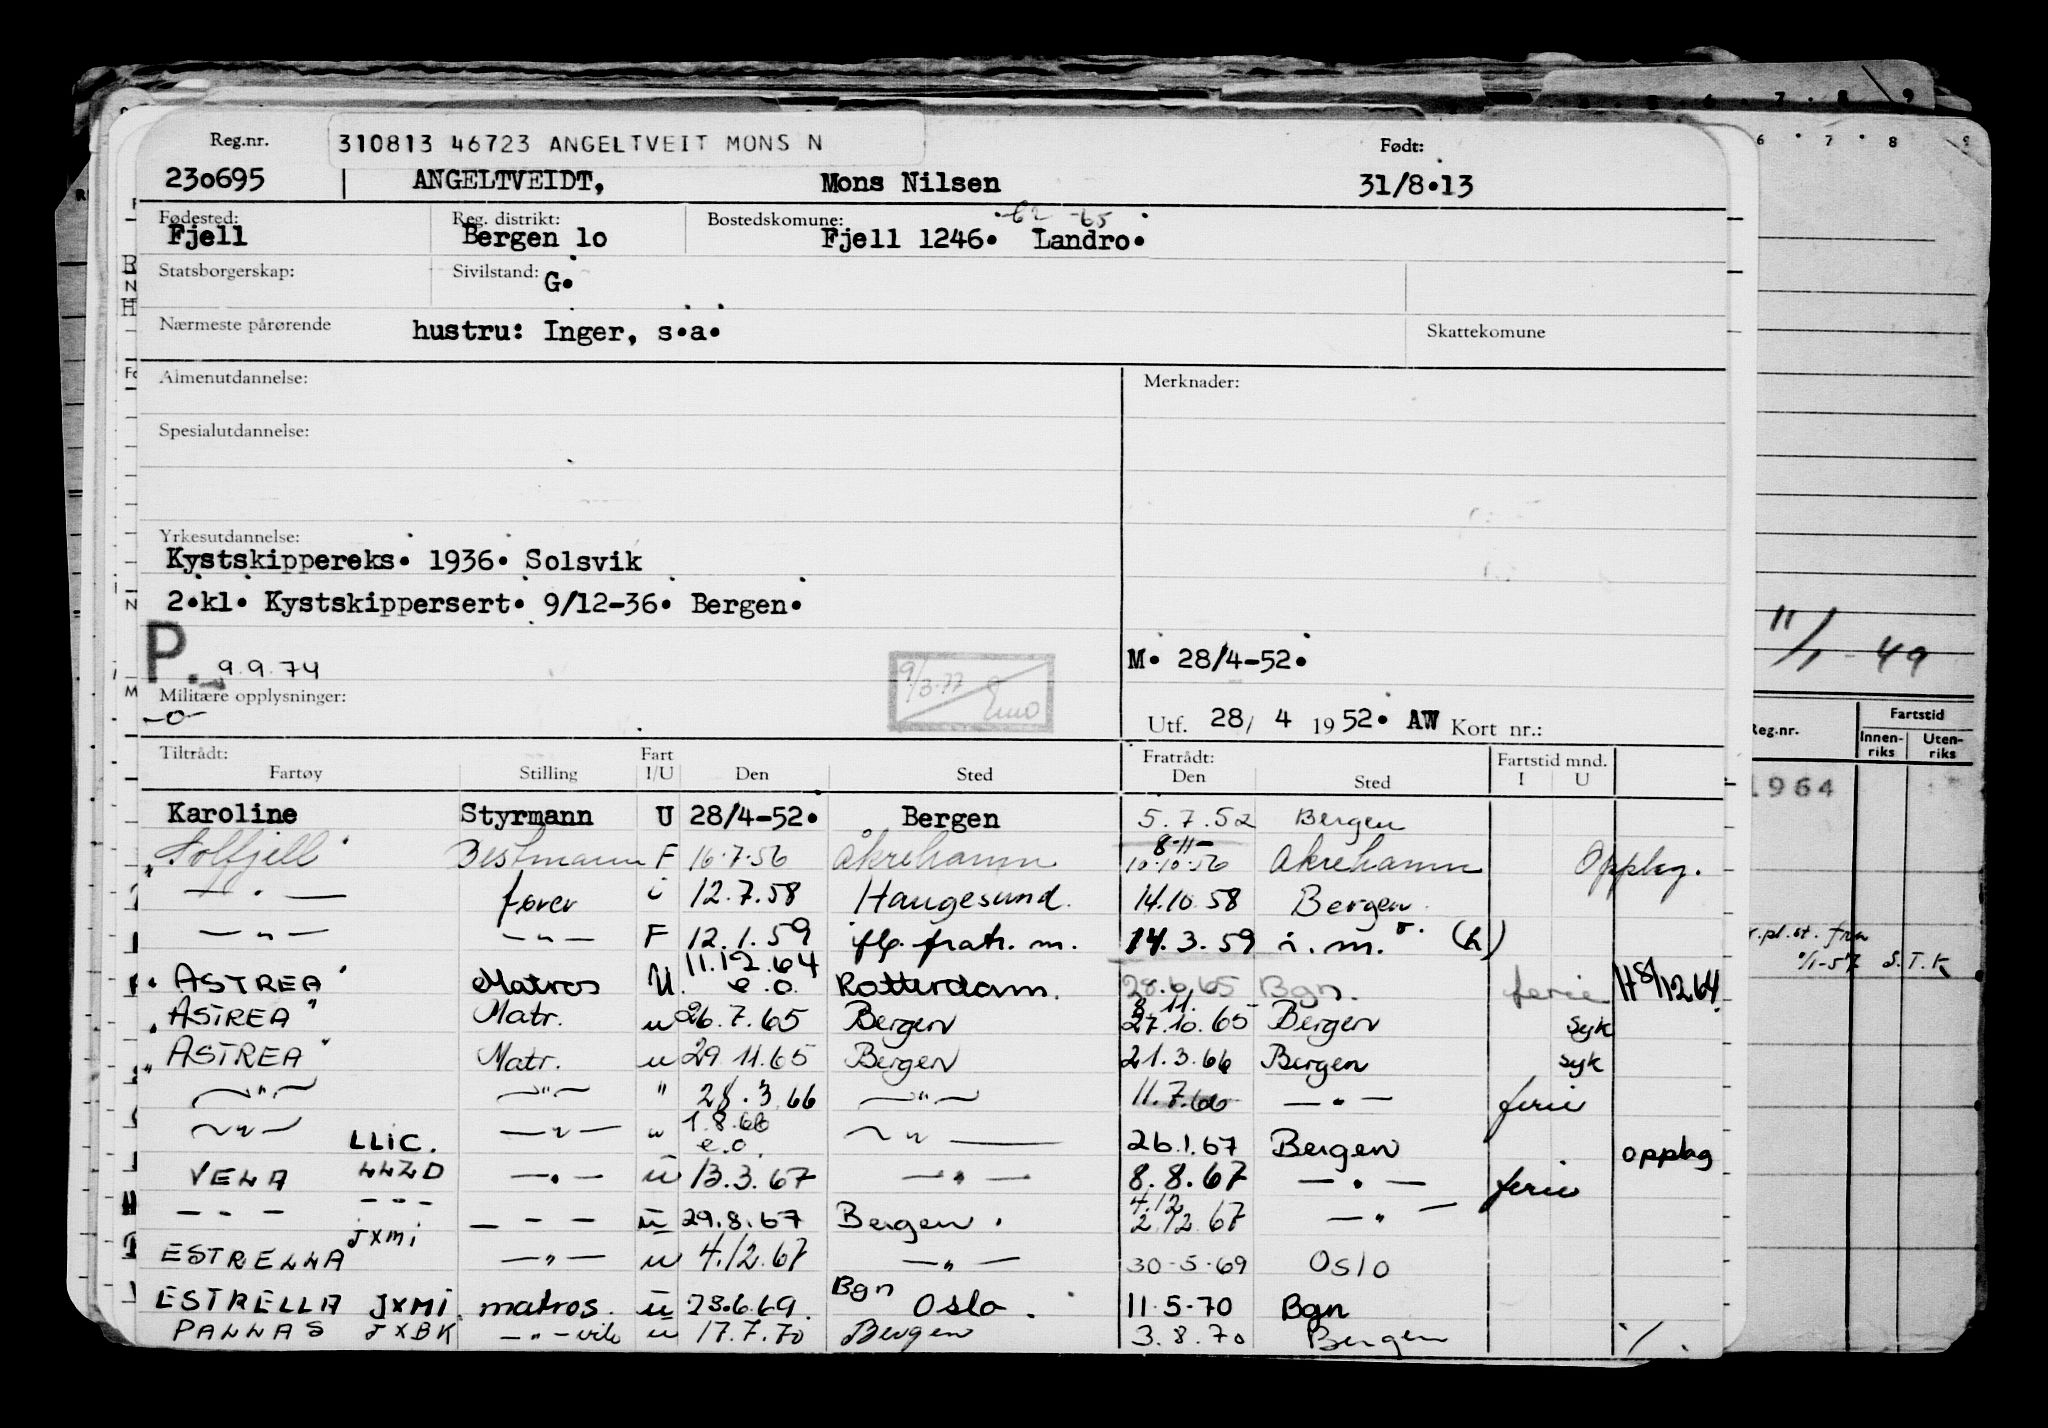 Reg.nr. 310813 46723 ANGELTVEIT MONS N Født:
230695 ANGELTVEIDT, Mons Nilsen 31/8.13
Fødested: Reg. distrikt: Bostedskomune: -62 -65
Fjell Bergen lo Fjell 1246. Landro.
Statsborgerskap: Sivilstand: G.
Nærmeste pårørende hustru: Inger, s.a. Skattekomune
Almenutdannelse: Merknader:
Spesialutdannelse:
Yrkesutdannelse:
Kystskippereks. 1936. Solsvik
2.kl. Kystskippersert. 9/12-36. Bergen.
P. 9.9.74 9/3-77 M. 28/4-52.
11/1-49
Militære opplysninger:
-o-
Utf. 28/ 4 1952. AW Kort nr.:
Reg.nr. Fartstid
Innenriks Utenriks
Tiltrådt: Fart Fratrådt: Fartstid mnd.
Fartøy Stilling I/U Den Sted Den Sted I U
1964
Karoline Styrmann U 28/4-52. Bergen 5.7.52 Bergen
8-11-
"Solfjell" Bestmann F 16.7.56 Åkrehamn 10.10.56 Åkrehamn Opplag.
— " — fører i 12.7.58 Haugesund. 14.10.58 Bergen.
— " — — " — F 12.1.59 ifg. fratr. m. 14.3.59 i. m. (h)
"ASTREA" Matros U. 11.12.64 e.o. Rotterdam. 28.6.65 Bgn. ferie H 8/12 64
8.11.
"ASTREA" Matr. u 26.7.65 Bergen 27.10.65 Bergen syk
"ASTREA" Matr. u 29.11.65 Bergen 21.3.66 Bergen syk
— " — — " — " 28.3.66 — " — 11.7.66 — " — ferie
— " — LLIC. — " — " 1.8.66 e.o. — " — 26.1.67 Bergen opplag
VELA LLZD — " — u 13.3.67 — " — 8.8.67 — " — ferie
4.12
— — — — — — — — — u 29.8.67 Bergen. 2.12.67 — " —
ESTRELLA JXMI — " — u 4.12.67 — " — 30-5-69 Oslo
ESTRELLA JXMI. matros. u 23.6.69. Bgn Oslo. 11-5-70 Bgn
PALLAS JXBK — " — vik u 17.7.70 Bergen 3.8.70 Bergen %.